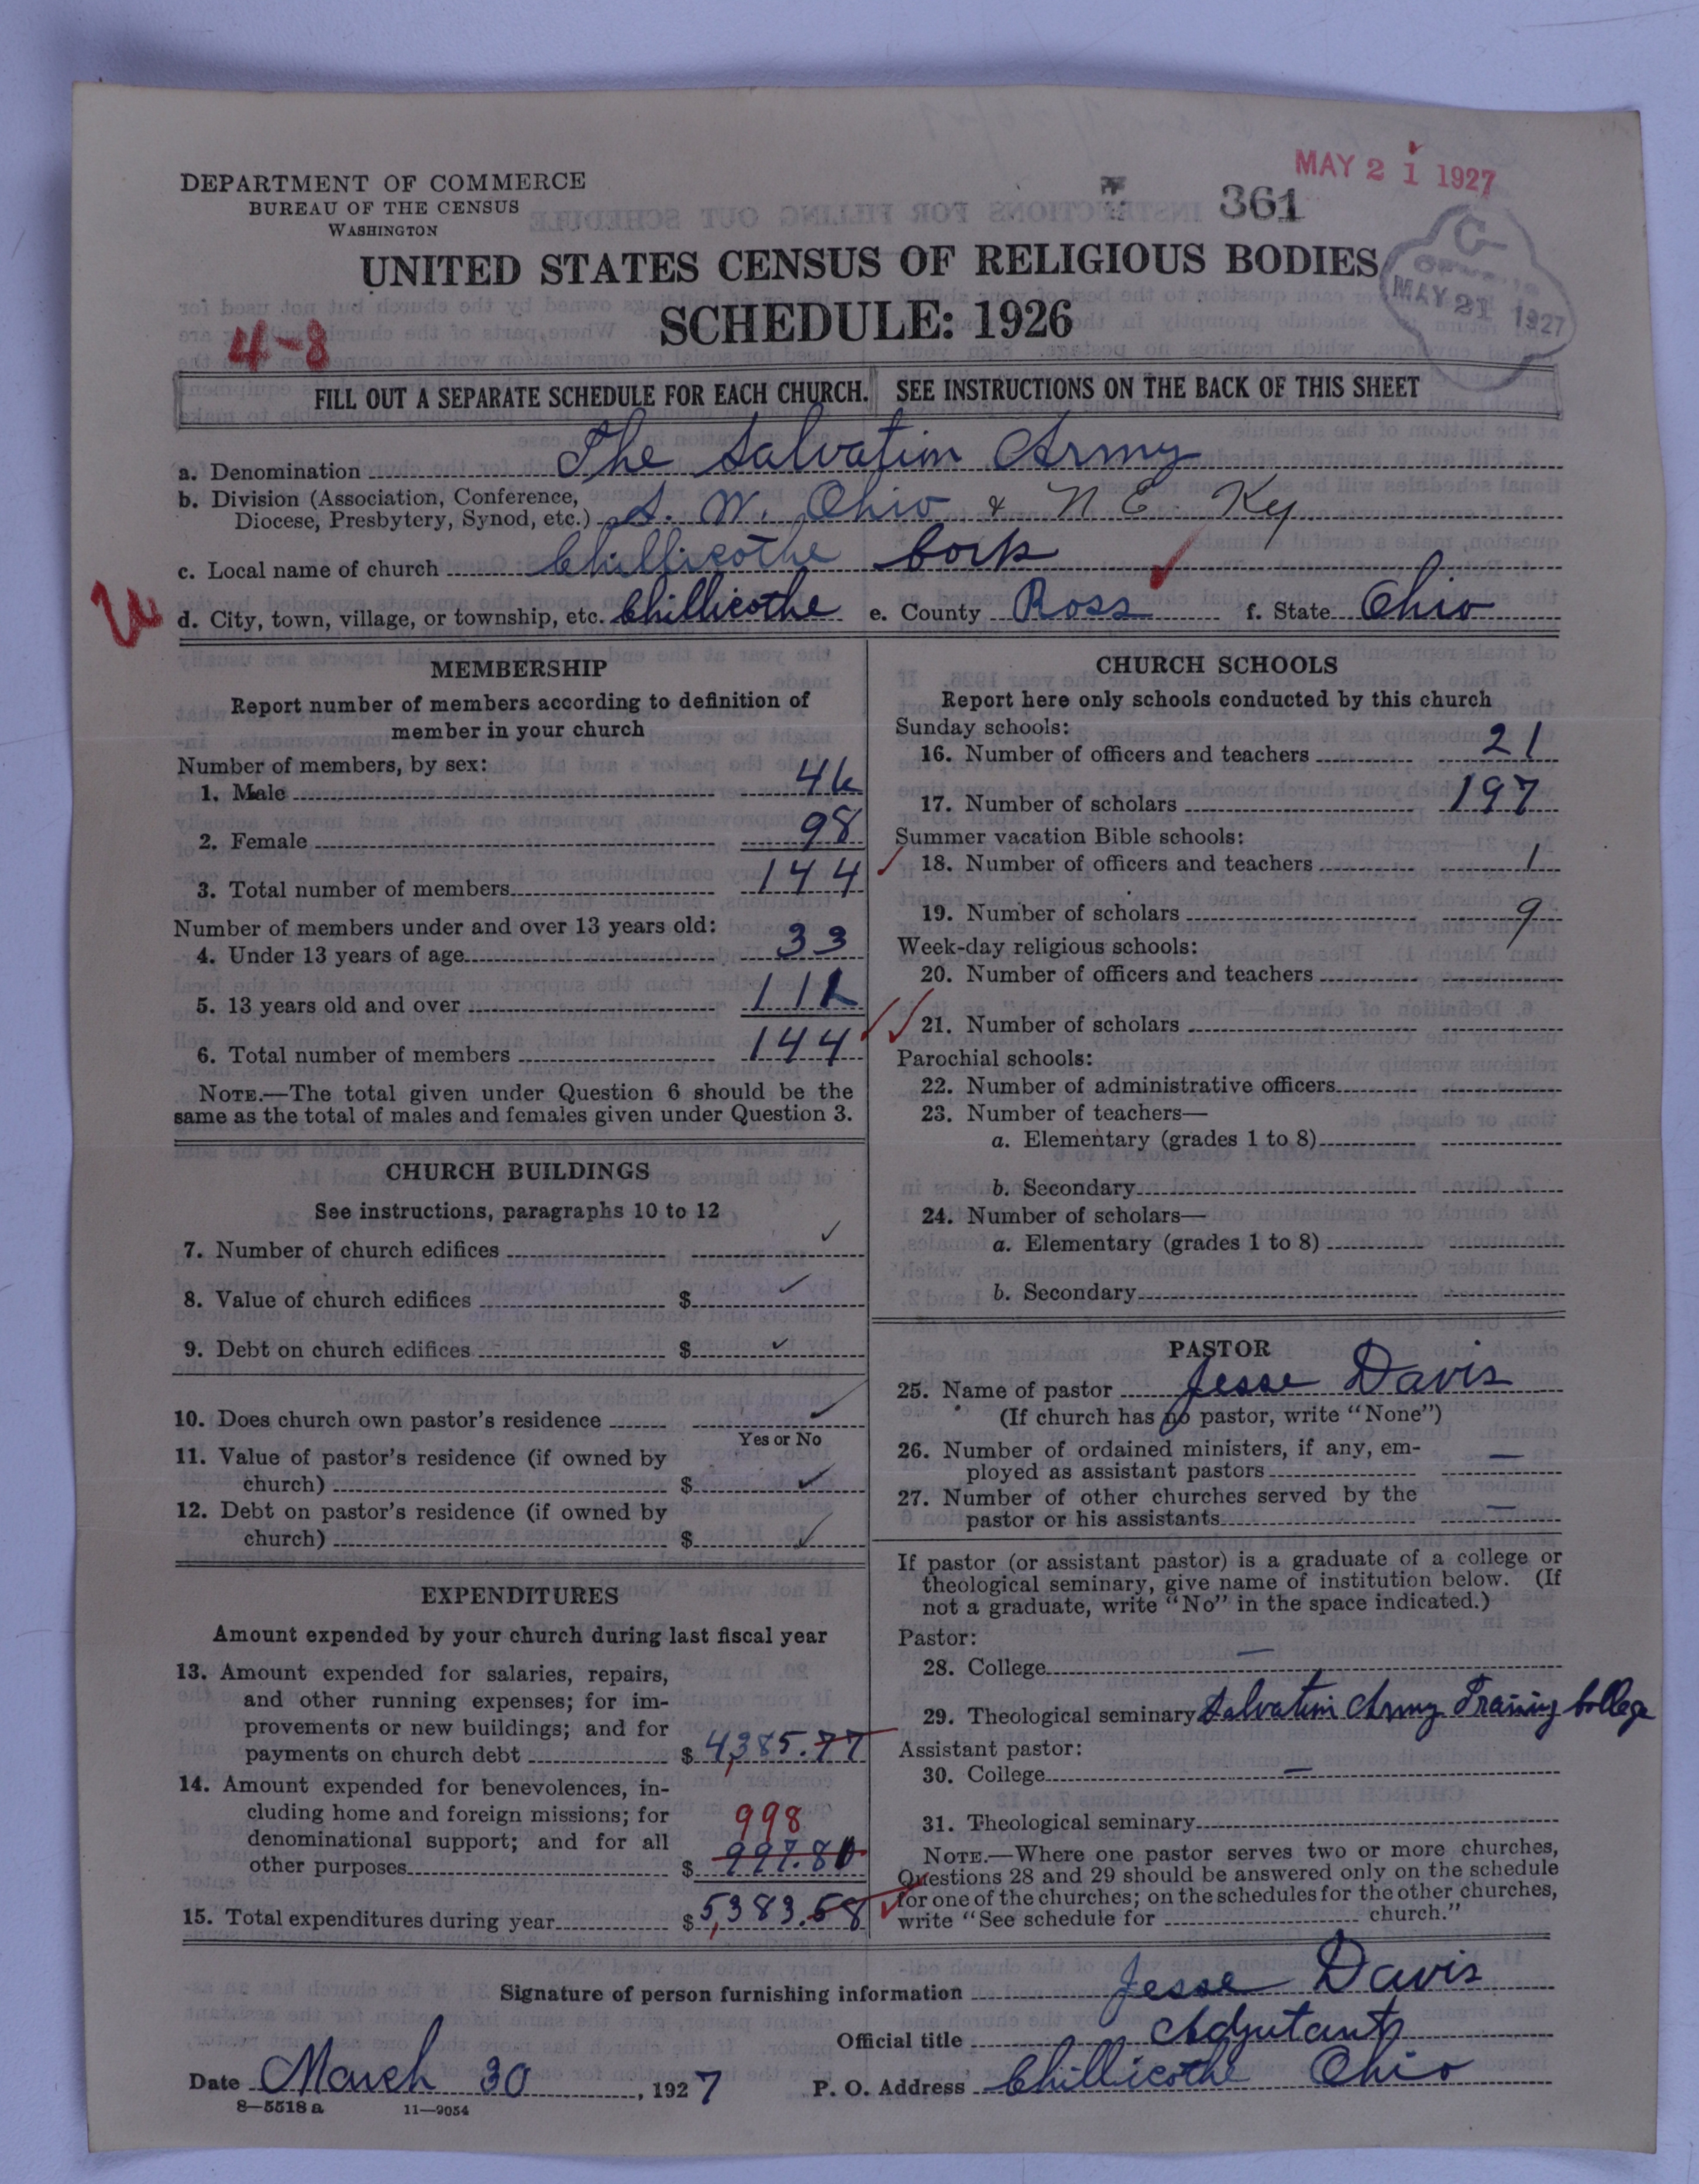 MAY 21 1927
DEPARTMENT OF COMMERCE
BUREAU OF THE CENSUS
WASHINGTON
361
UNITED STATES CENSUS OF RELIGIOUS BODIES
SCHEDULE: 1926
MAY 21 1927
4-8
FILL OUT A SEPARATE SCHEDULE FOR EACH CHURCH. SEE INSTRUCTIONS ON THE BACK OF THIS SHEET
a. Denomination The Salvation Army
b. Division (Association, Conference,
Diocese, Presbytery, Synod, etc.) S. W. Ohio & N E. Ky
c. Local name of church Chillicothe Corps
d. City, town, village, or township, etc. Chillicothe e. County Ross f. State Ohio
MEMBERSHIP
Report number of members according to definition of
member in your church
Number of members, by sex:
1. Male 46
2. Female 98
3. Total number of members 144
Number of members under and over 13 years old:
4. Under 13 years of age 33
5. 13 years old and over 111
6. Total number of members 144
NOTE.—The total given under Question 6 should be the
same as the total of males and females given under Question 3.
CHURCH BUILDINGS
See instructions, paragraphs 10 to 12
7. Number of church edifices
8. Value of church edifices $
9. Debt on church edifices $
10. Does church own pastor's residence
Yes or No
11. Value of pastor's residence (if owned by
church) $
12. Debt on pastor's residence (if owned by
church) $
EXPENDITURES
Amount expended by your church during last fiscal year
13. Amount expended for salaries, repairs,
and other running expenses; for im-
provements or new buildings; and for
payments on church debt $ 4,385.77
14. Amount expended for benevolences, in-
cluding home and foreign missions; for 998
denominational support; and for all
other purposes $ 997.81
15. Total expenditures during year $ 5,383.58
CHURCH SCHOOLS
Report here only schools conducted by this church
Sunday schools:
16. Number of officers and teachers 21
17. Number of scholars 197
Summer vacation Bible schools:
18. Number of officers and teachers 1
19. Number of scholars 9
Week-day religious schools:
20. Number of officers and teachers
21. Number of scholars
Parochial schools:
22. Number of administrative officers
23. Number of teachers—
a. Elementary (grades 1 to 8)
b. Secondary
24. Number of scholars—
a. Elementary (grades 1 to 8)
b. Secondary
PASTOR
25. Name of pastor Jesse Davis
(If church has no pastor, write "None")
26. Number of ordained ministers, if any, em-
ployed as assistant pastors —
27. Number of other churches served by the
pastor or his assistants —
If pastor (or assistant pastor) is a graduate of a college or
theological seminary, give name of institution below. (If
not a graduate, write "No" in the space indicated.)
Pastor:
28. College —
29. Theological seminary Salvation Army Training College
Assistant pastor:
30. College —
31. Theological seminary
NOTE.—Where one pastor serves two or more churches,
Questions 28 and 29 should be answered only on the schedule
for one of the churches; on the schedules for the other churches,
write "See schedule for church."
Signature of person furnishing information Jesse Davis
Official title Adjutant
Date March 30, 1927 P. O. Address Chillicothe Ohio
8—5518 a 11—9054